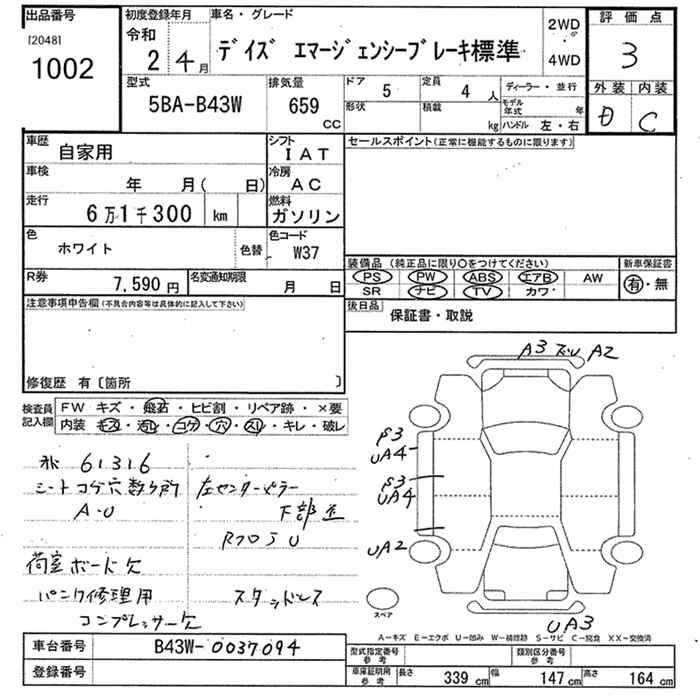 出品番号
[2048]
1002
初度登録年月
令和
2 4月
車名・グレード
デイズ エマージェンシーブレーキ標準
2WD
4WD
評価点
3
外装 内装
D C
型式
5BA-B43W
排気量
659
CC
ドア 5
定員 4 人
形状
積載 kg
ディーラー・並行
モデル年式 年
ハンドル 左・右
車歴
自家用
シフト
IAT
車検
年 月( 日)
冷房
AC
走行
6万1千300 km
燃料
ガソリン
色
ホワイト
色替
色コード
W37
R券
7,590円
名変通知期限
月 日
セールスポイント(正常に機能するものに限ります)
装備品 (純正品に限り○をつけてください)
PS PW ABS エアB AW
SR ナビ TV カワ
新車保証書
有・無
後日品
保証書・取説
注意事項申告欄(不具合内容等は具体的に記入して下さい)
修復歴 有〔箇所 〕
検査員記入欄
FW キズ・飛石・ヒビ割・リペア跡・×要
内装 キズ・汚レ・コゲ・穴・スレ・キレ・破レ
61316
シートコゲ穴数ヶ所
A-U
荷室ボード欠
パンク修理用
コンプレッサー欠
左センターピラー
下部歪
スタッドレス
A3 A2
S3
UA4
S3
UA4
UA2
UA3
スペア
A－キズ E－エクボ U－凹み W－補修跡 S－サビ C－腐食 XX－交換済
車台番号
B43W-0037094
登録番号
型式指定番号 参考
類別区分番号 参考
車庫証明用 参考
長さ 339 cm
幅 147 cm
高さ 164 cm